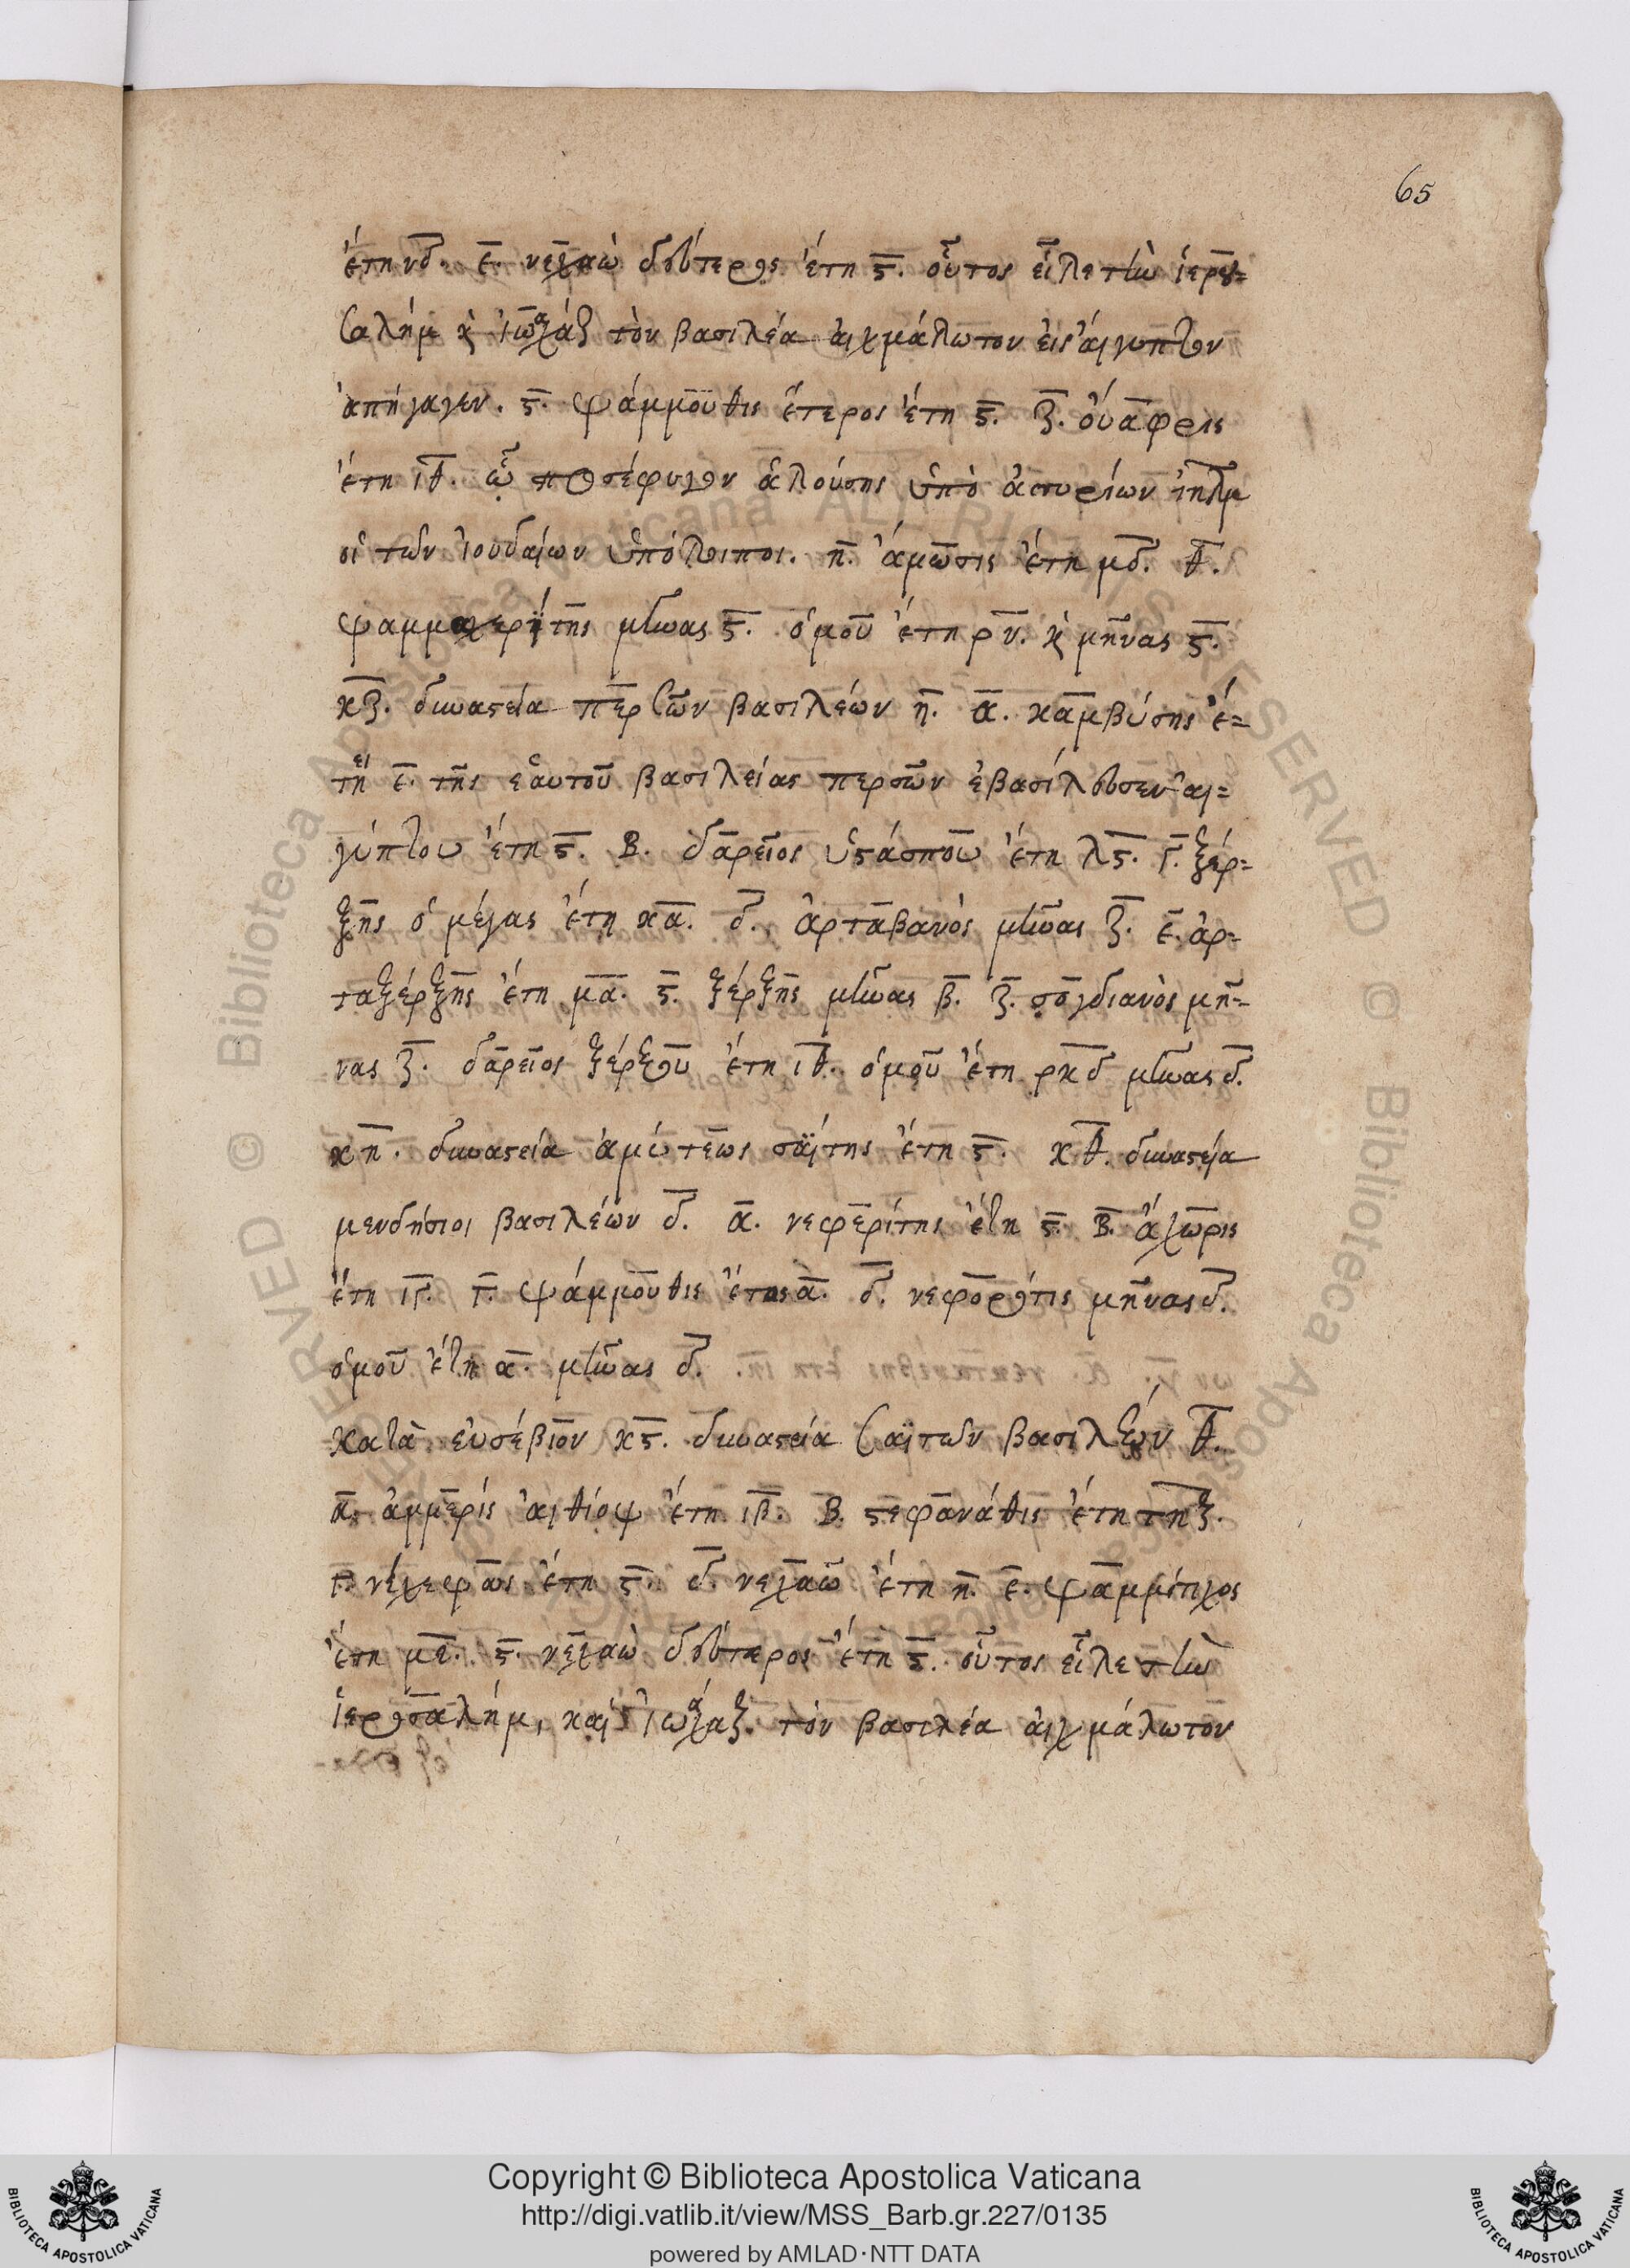 65
ἔτη νδ. ε. νεχαὼ δεύτερος ἔτη ς. οὗτος εἷλε τὴν ἱερου=
σαλήμ κ ἰωαχάζ τὸν βασιλέα αἰχμάλωτον εἰς αἴγυπτον
ἀπήγαγεν. ς. ψάμμουθις ἕτερος ἔτη ς. ζ. οὐάφρις
ἔτη ιθ. ᾧ προσέφυγον ἁλούσης ὑπὸ ἀσσυρίων ἰηλμ
οἱ τῶν ἰουδαίων ὑπόλοιποι. η. ἄμωσις ἔτη μδ. θ.
ψαμμαχερίτης μῆνας ς. ὁμοῦ ἔτη ρν. κ μῆνας ς.
κζ. δυναστεία περσῶν βασιλέων η. α. καμβύσης ἔ=
τη ε. τῆς ἑαυτοῦ βασιλείας περσῶν ἐβασίλευσεν αἰ=
γύπτου ἔτη ς. β. δαρεῖος ὑστάσπου ἔτη λς. γ. ξέρ=
ξης ὁ μέγας ἔτη κα. δ. ἀρτάβανὸς μῆνας ζ. ε. ἀρ=
ταξέρξης ἔτη μα. ς. ξέρξης μῆνας β. ζ. σογδιανὸς μῆ=
νας ζ. δαρεῖος ξέρξου ἔτη ιθ. ὁμοῦ ἔτη ρκδ μῆνας δ.
κη. δυναστεία ἀμύτεως σαΐτης ἔτη ς. κθ. δυναστεία
μενδήσιοι βασιλέων δ. α. νεφερίτης ἔτη ς. β. ἄχωρις
ἔτη ιγ. γ. ψάμμουθις ἔτος α. δ. νεφορότις μῆνας δ.
ὁμοῦ ἔτη α. μῆνας δ.
κατὰ εὐσέβιον κς. δυναστεία σαϊτῶν βασιλέων θ.
α. ἀμμερίς αἰθίοψ ἔτη ιβ. β. στεφανάθις ἔτη
γ. νέχεψως ἔτη ς. δ. νεχαὼ ἔτη η. ε. ψαμμίτιχος
ἔτη με. ς. νεχαὼ δεύτερος ἔτη ς. οὗτος εἷλε τὴν
ἱερουσαλήμ, καὶ ἰωάχαζ. τὸν βασιλέα αἰχμάλωτον
Copyright © Biblioteca Apostolica Vaticana
http://digi.vatlib.it/view/MSS_Barb.gr.227/0135
powered by AMLAD·NTT DATA